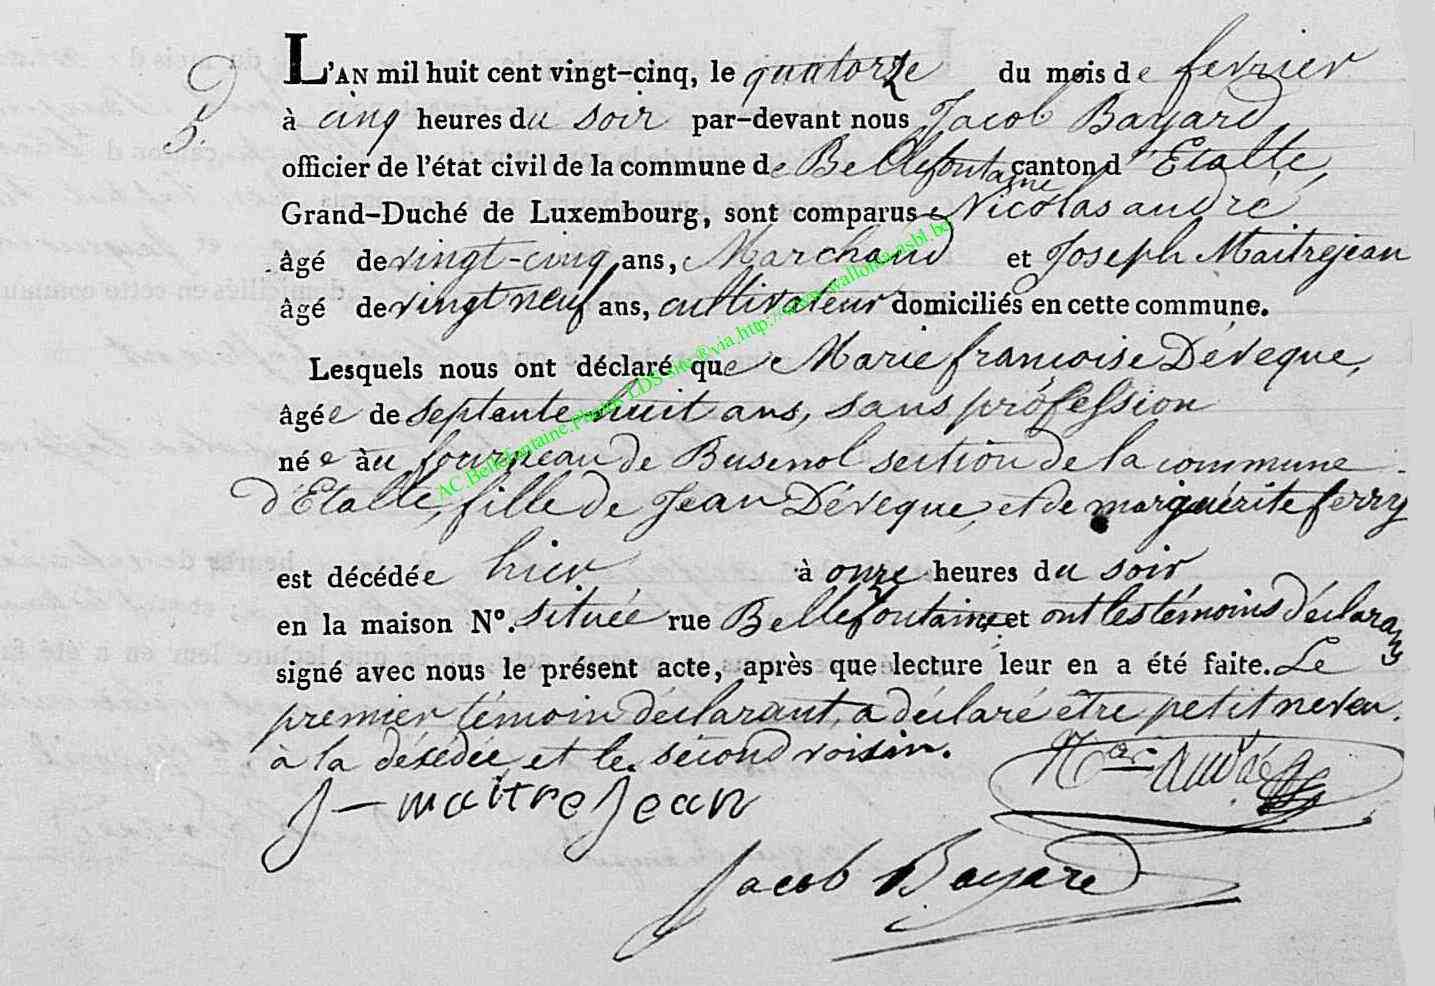 L'AN mil huit cent vingt-cinq, le quatorze du mois de fevrier
à cinq heures du soir par-devant nous Jacob Bayard
officier de l'état civil de la commune de Bellefontaine canton d'Etalle,
Grand-Duché de Luxembourg, sont comparus Nicolas andré
âgé de vingt-cinq ans, Marchand et Joseph Maitrejean
âgé de vingt neuf ans, cultivateur domiciliés en cette commune.
Lesquels nous ont déclaré que Marie francoise Déveque,
âgée de septante huit ans, sans profession
née àu fourneau de Busenol section de la commune
d'Etalle, fille de Jean Déveque, et de marguérite ferry
est décédée hier à onze heures du soir
en la maison Nº. située rue Bellefontaine et ont les témoins déclarans
signé avec nous le présent acte, après que lecture leur en a été faite. Le
premier témoin déclarant, a déclaré être petit neveu
à la désedée, et le second voisin.
J-maitreJean
Nas andré
Jacob Bayard
AC.Bellefontaine.Photos LDS site®via.http://www.wallonia-asbl.be